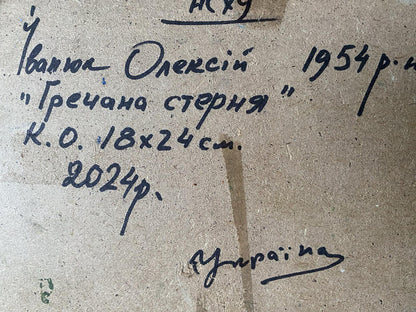 НСХУ
Іванюк Олексій 1954 р. н
"Гречана стерня"
К. О. 18х24 см.
2024р.
Україна